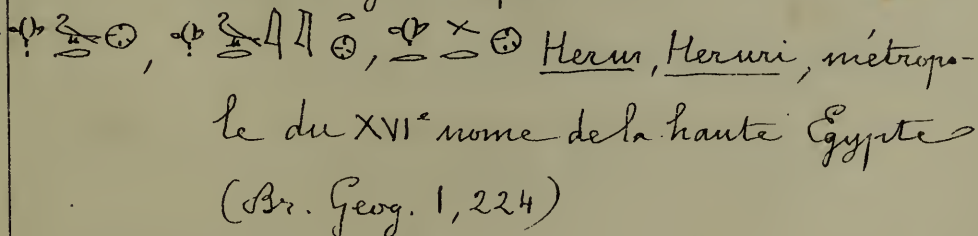 Herur, Heruri, métropo-
le du XVIᵉ nome de la haute Égypte
(Br. Geog. 1, 224)